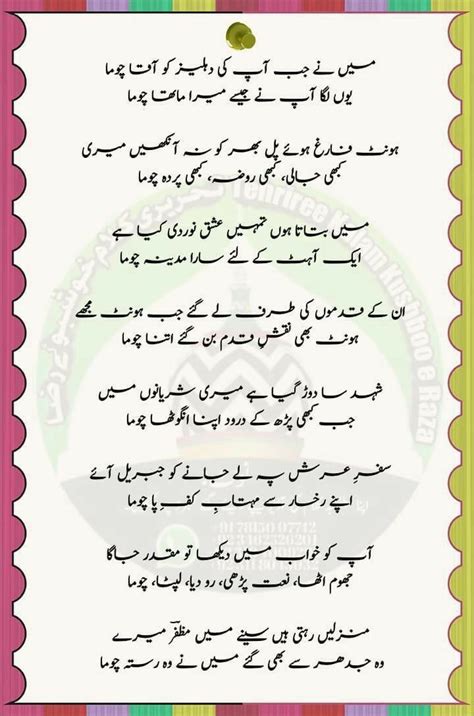 میں نے جب آپ کی دہلیز کو آقا چوما
یوں لگا آپ نے جیسے میرا ماتھا چوما
ہونٹ فارغ ہوئے پل بھر کو نہ آنکھیں میری
کبھی جالی، کبھی روضہ، کبھی پردہ چوما
میں بتاتا ہوں تمہیں عشق نوردی کیا ہے
ایک آہٹ کے لئے سارا مدینہ چوما
ان کے قدموں کی طرف لے گئے جب ہونٹ مجھے
ہونٹ بھی نقشِ قدم بن گئے اتنا چوما
شہد سا دوڑ گیا ہے میری شریانوں میں
جب کبھی پڑھ کے درود اپنا انگوٹھا چوما
سفرِ عرش پہ لے جانے کو جبریل آئے
اپنے رخسار سے مہتابِ کفِ پا چوما
آپ کو خواب میں دیکھا تو مقدر جاگا
جھوم اٹھا، نعت پڑھی، رو دیا، لپٹا، چوما
منزلیں رہتی ہیں سینے میں مظفرؔ میرے
وہ جدھر سے بھی گئے میں نے وہ رستہ چوما
Tehriree Kalam Kushboo e Raza
تحریری کلام خوشبوئے رضا